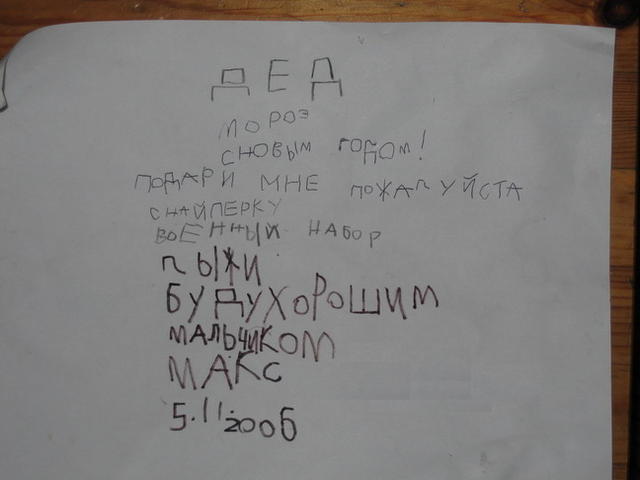 ДЕД
МОРОЗ
СНОВЫМ ГОДОМ!
ПОДАРИ МНЕ ПОЖАЛУЙСТА
СНАЙПЕРКУ
ВОЕННЫЙ НАБОР
ЛЫЖИ
БУДУ ХОРОШИМ
МАЛЬЧИКОМ
МАКС
5.11.2006